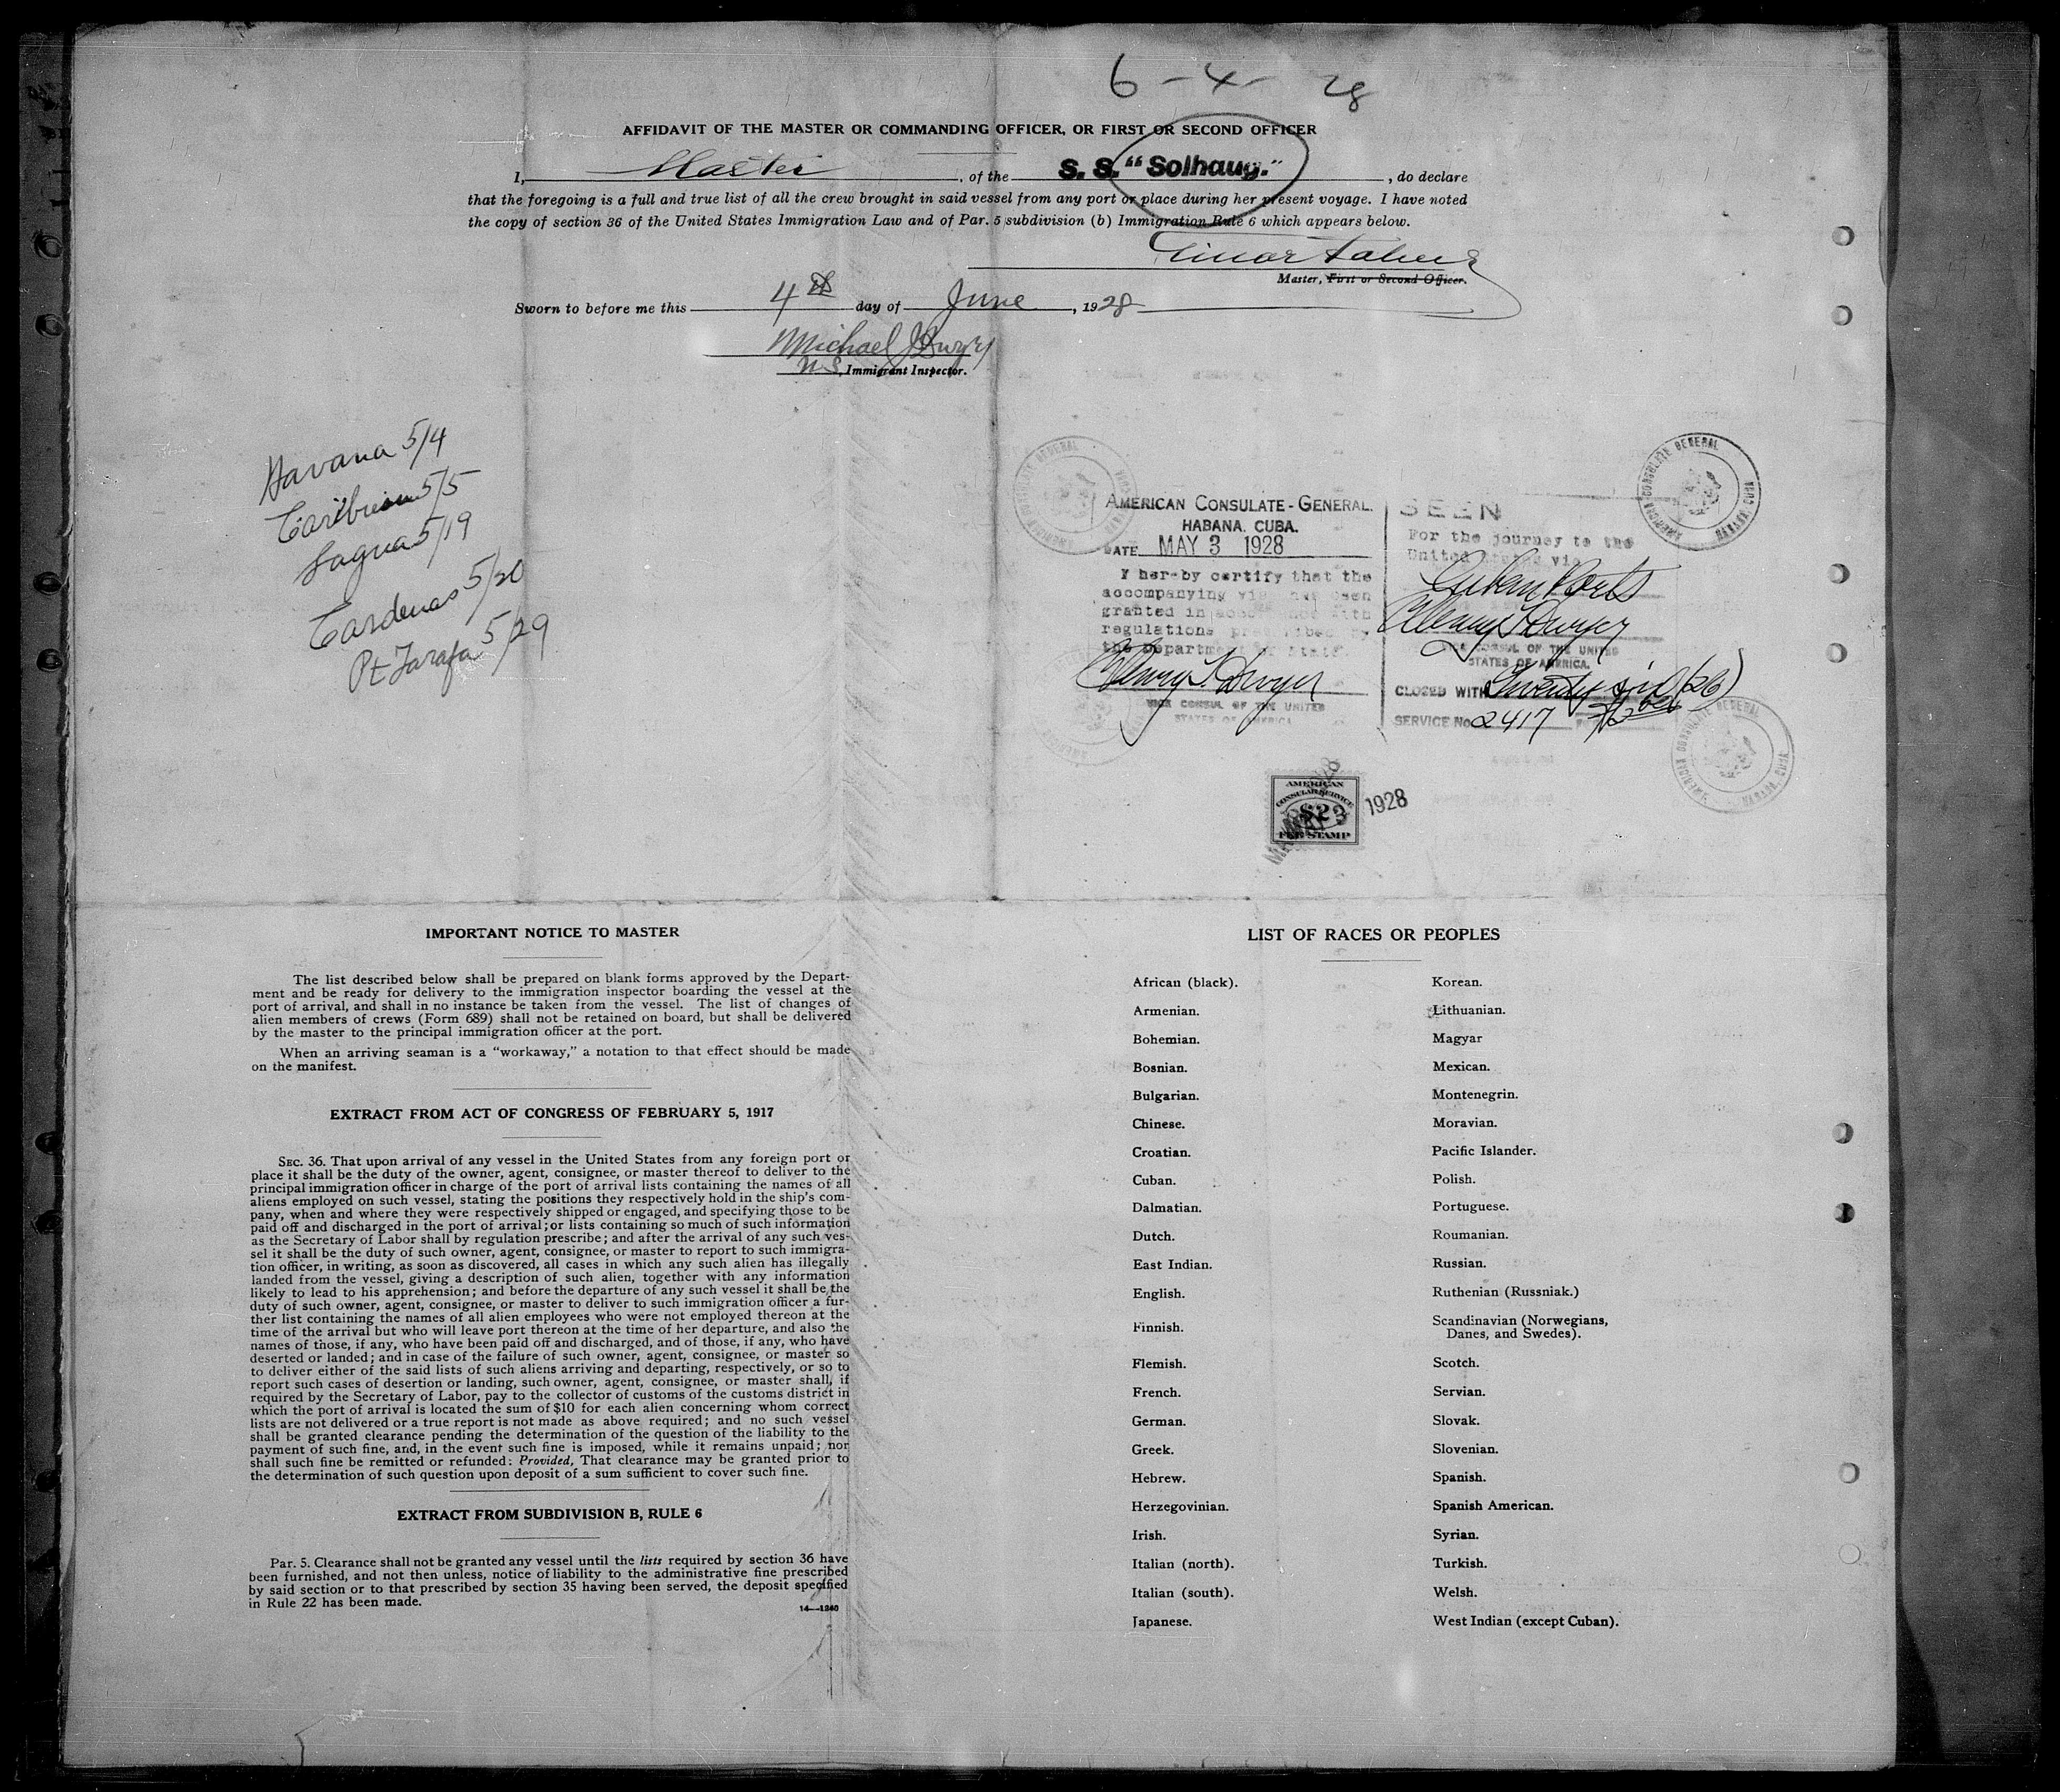 6-4-28
AFFIDAVIT OF THE MASTER OR COMMANDING OFFICER, OR FIRST OR SECOND OFFICER
I, Master, of the S. S. "Solhaug.", do declare
that the foregoing is a full and true list of all the crew brought in said vessel from any port or place during her present voyage. I have noted
the copy of section 36 of the United States Immigration Law and of Par. 5 subdivision (b) Immigration Rule 6 which appears below.
Einar
Master, First or Second Officer.
Sworn to before me this 4th day of June, 1928
Michael J Dwyer
U.S. Immigrant Inspector.
Havana 5/4
Caribrien 5/5
Sagua 5/19
Cardenas 5/20
Pt Tarafa 5/29
AMERICAN CONSULATE-GENERAL.
HABANA. CUBA.
DATE MAY 3 1928
I hereby certify that the
accompanying visa has been
granted in accordance with
regulations prescribed by
the Department of State.
Henry T. Dwyer
VICE CONSUL OF THE UNITED
STATES OF AMERICA
SEEN
For the journey to the
United States via
Cuban Ports
Henry T. Dwyer
VICE CONSUL OF THE UNITED
STATES OF AMERICA.
CLOSED WITH Twenty six (26)
SERVICE No. 2417
AMERICAN CONSULATE GENERAL HABANA, CUBA
AMERICAN CONSULATE GENERAL HABANA, CUBA
AMERICAN CONSULATE GENERAL HABANA, CUBA
AMERICAN
CONSULAR SERVICE
$2
FEE STAMP
1928
IMPORTANT NOTICE TO MASTER
The list described below shall be prepared on blank forms approved by the Depart-
ment and be ready for delivery to the immigration inspector boarding the vessel at the
port of arrival, and shall in no instance be taken from the vessel. The list of changes of
alien members of crews (Form 689) shall not be retained on board, but shall be delivered
by the master to the principal immigration officer at the port.
When an arriving seaman is a "workaway," a notation to that effect should be made
on the manifest.
EXTRACT FROM ACT OF CONGRESS OF FEBRUARY 5, 1917
SEC. 36. That upon arrival of any vessel in the United States from any foreign port or
place it shall be the duty of the owner, agent, consignee, or master thereof to deliver to the
principal immigration officer in charge of the port of arrival lists containing the names of all
aliens employed on such vessel, stating the positions they respectively hold in the ship's com-
pany, when and where they were respectively shipped or engaged, and specifying those to be
paid off and discharged in the port of arrival; or lists containing so much of such information
as the Secretary of Labor shall by regulation prescribe; and after the arrival of any such ves-
sel it shall be the duty of such owner, agent, consignee, or master to report to such immigra-
tion officer, in writing, as soon as discovered, all cases in which any such alien has illegally
landed from the vessel, giving a description of such alien, together with any information
likely to lead to his apprehension; and before the departure of any such vessel it shall be the
duty of such owner, agent, consignee, or master to deliver to such immigration officer a fur-
ther list containing the names of all alien employees who were not employed thereon at the
time of the arrival but who will leave port thereon at the time of her departure, and also the
names of those, if any, who have been paid off and discharged, and of those, if any, who have
deserted or landed; and in case of the failure of such owner, agent, consignee, or master so
to deliver either of the said lists of such aliens arriving and departing, respectively, or so to
report such cases of desertion or landing, such owner, agent, consignee, or master shall, if
required by the Secretary of Labor, pay to the collector of customs of the customs district in
which the port of arrival is located the sum of $10 for each alien concerning whom correct
lists are not delivered or a true report is not made as above required; and no such vessel
shall be granted clearance pending the determination of the question of the liability to the
payment of such fine, and, in the event such fine is imposed, while it remains unpaid; nor
shall such fine be remitted or refunded: Provided, That clearance may be granted prior to
the determination of such question upon deposit of a sum sufficient to cover such fine.
EXTRACT FROM SUBDIVISION B, RULE 6
Par. 5. Clearance shall not be granted any vessel until the lists required by section 36 have
been furnished, and not then unless, notice of liability to the administrative fine prescribed
by said section or to that prescribed by section 35 having been served, the deposit specified
in Rule 22 has been made.
14—1240
LIST OF RACES OR PEOPLES
African (black).
Armenian.
Bohemian.
Bosnian.
Bulgarian.
Chinese.
Croatian.
Cuban.
Dalmatian.
Dutch.
East Indian.
English.
Finnish.
Flemish.
French.
German.
Greek.
Hebrew.
Herzegovinian.
Irish.
Italian (north).
Italian (south).
Japanese.
Korean.
Lithuanian.
Magyar
Mexican.
Montenegrin.
Moravian.
Pacific Islander.
Polish.
Portuguese.
Roumanian.
Russian.
Ruthenian (Russniak.)
Scandinavian (Norwegians,
Danes, and Swedes).
Scotch.
Servian.
Slovak.
Slovenian.
Spanish.
Spanish American.
Syrian.
Turkish.
Welsh.
West Indian (except Cuban).